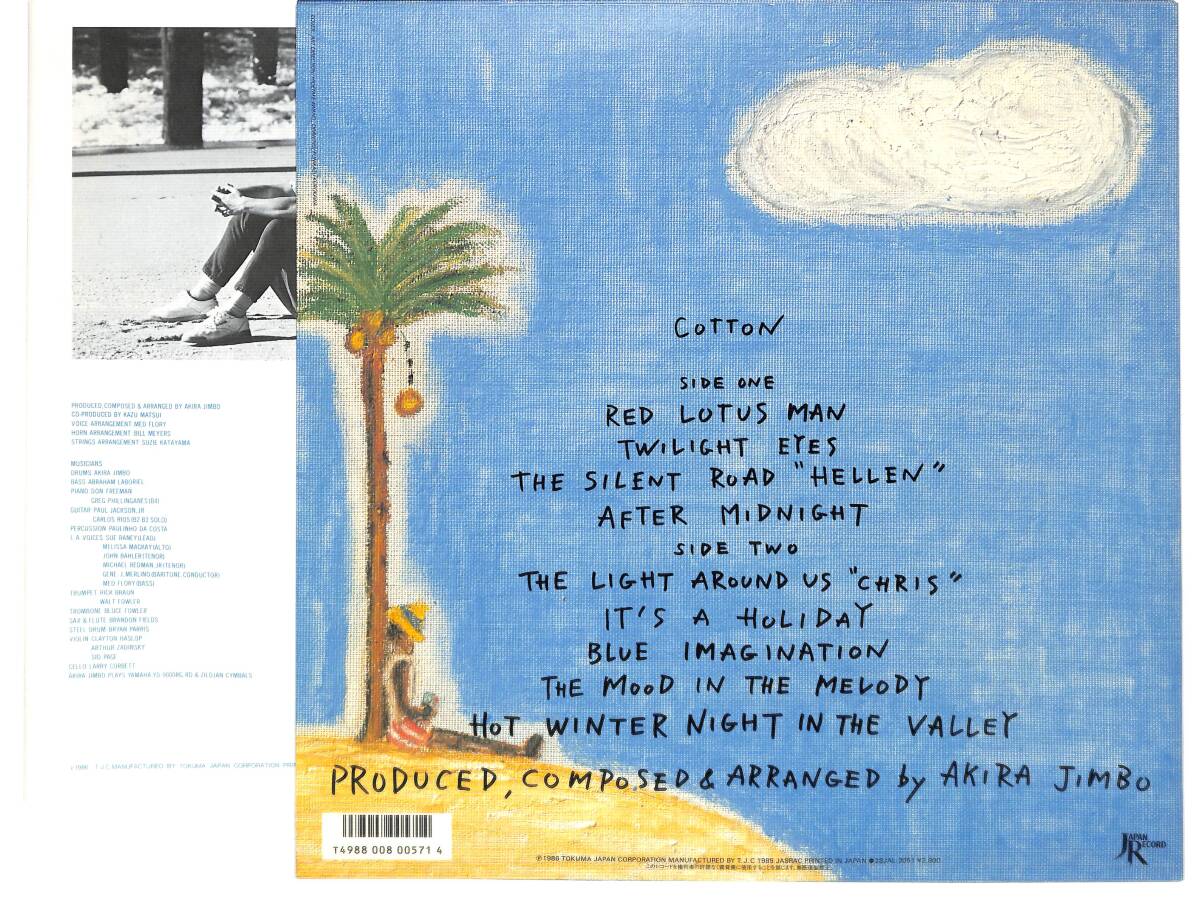 PRODUCED, COMPOSED & ARRANGED BY AKIRA JIMBO
CO-PRODUCED BY KAZU MATSUI
VOICE ARRANGEMENT MED FLORY
HORN ARRANGEMENT BILL MEYERS
STRINGS ARRANGEMENT SUZIE KATAYAMA
MUSICIANS
DRUMS AKIRA JIMBO
BASS ABRAHAM LABORIEL
PIANO DON FREEMAN
GREG PHILLINGANES (B4)
GUITAR PAUL JACKSON, JR
CARLOS RIOS (B2·B3 SOLO)
PERCUSSION PAULINHO DA COSTA
L.A. VOICES SUE RANEY (LEAD)
MELISSA MACKAY (ALTO)
JOHN BAHLER (TENOR)
MICHAEL REDMAN, JR (TENOR)
GENE J. MERLINO (BARITONE, CONDUCTOR)
MED FLORY (BASS)
TRUMPET RICK BRAUN
WALT FOWLER
TROMBONE BLUCE FOWLER
SAX & FLUTE BRANDON FIELDS
STEEL DRUM BRYAN PARRIS
VIOLIN CLAYTON HASLOP
ARTHUR ZADINSKY
SID PAGE
CELLO LARRY CORBETT
AKIRA JIMBO PLAYS YAMAHA YD 9000RG, RD & ZILDJIAN CYMBALS
℗1986 T.J.C MANUFACTURED BY TOKUMA JAPAN CORPORATION PRIN
COTTON
SIDE ONE
RED LOTUS MAN
TWILIGHT EYES
THE SILENT ROAD "HELLEN"
AFTER MIDNIGHT
SIDE TWO
THE LIGHT AROUND US "CHRIS"
IT'S A HOLIDAY
BLUE IMAGINATION
THE MOOD IN THE MELODY
HOT WINTER NIGHT IN THE VALLEY
PRODUCED, COMPOSED & ARRANGED by AKIRA JIMBO
T4988 008 00571 4
℗1986 TOKUMA JAPAN CORPORATION MANUFACTURED BY T.J.C 1986 JASRAC PRINTED IN JAPAN ●28JAL-3051 ¥2,800
JAPAN
RECORD